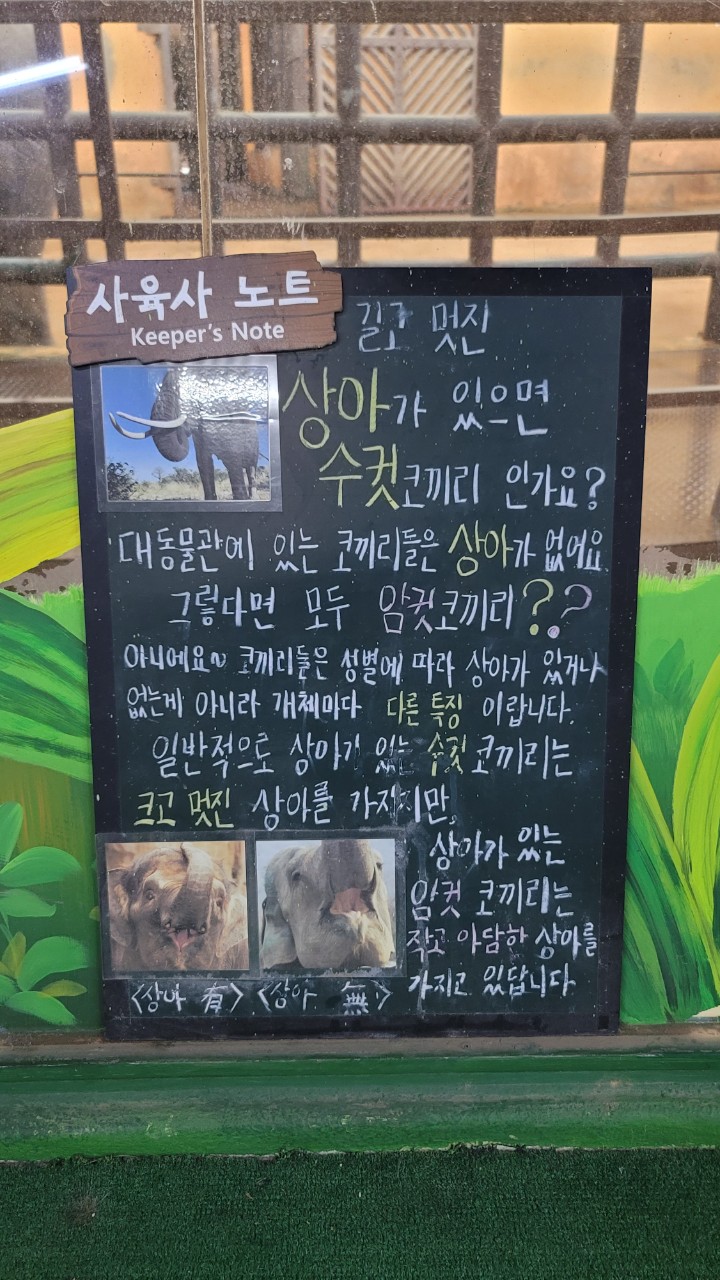 사육사 노트
Keeper's Note
길고 멋진
상아가 있으면
수컷코끼리 인가요?
대동물관에 있는 코끼리들은 상아가 없어요.
그렇다면 모두 암컷코끼리??
아니에요~ 코끼리들은 성별에 따라 상아가 있거나
없는게 아니라 개체마다 다른 특징 이랍니다.
일반적으로 상아가 있는 수컷 코끼리는
크고 멋진 상아를 가지지만,
상아가 있는
암컷 코끼리는
작고 아담한 상아를
가지고 있답니다.
<상아 有> <상아 無>